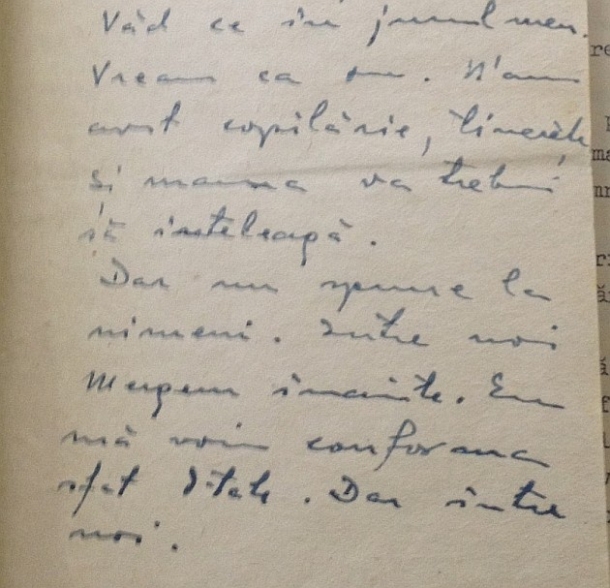 Văd ce în jurul meu.
Vream ca om. N'am
avut copilărie, tinerețe
și mama va trebui
să înțeleagă.
Dar nu spune la
nimeni. Între noi
Mergem înainte. Eu
mă voiu conforma
sfat
. Dar între
noi.